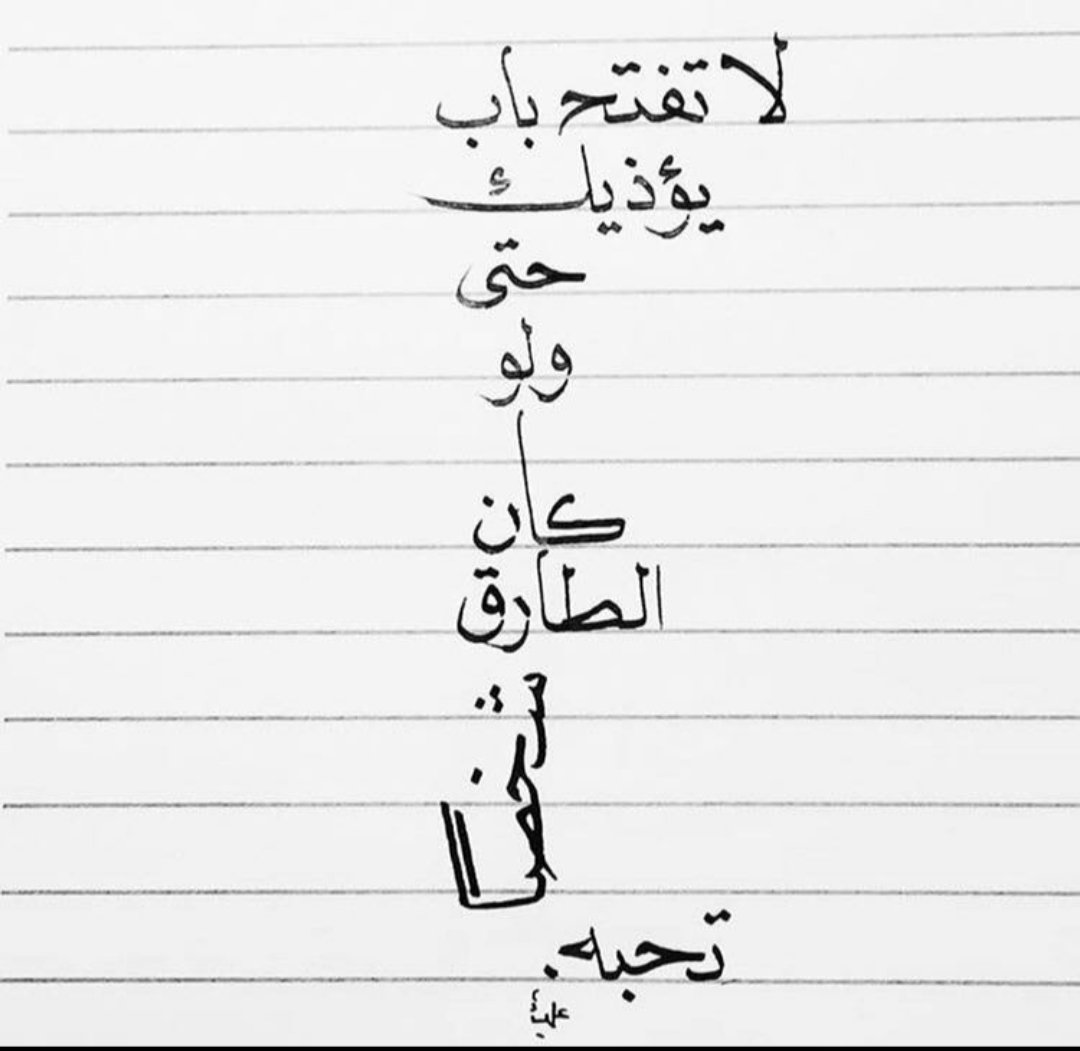 لا تفتح باب
يؤذيك
حتى
ولو
كان
الطارق
شخصاً
تحبه.